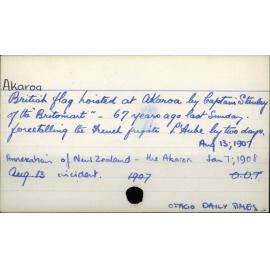 Akaroa
British flag hoisted at Akaroa by Captain Stanley
of the "Britomart" - 67 years ago last Sunday.
forestalling the French frigate L'Aube by two days.
Aug 13, 1907
Annexation of New Zealand - the Akaroa Jan 7, 1908
Aug 13 incident. 1907 O.D.T
OTAGO DAILY TIMES.